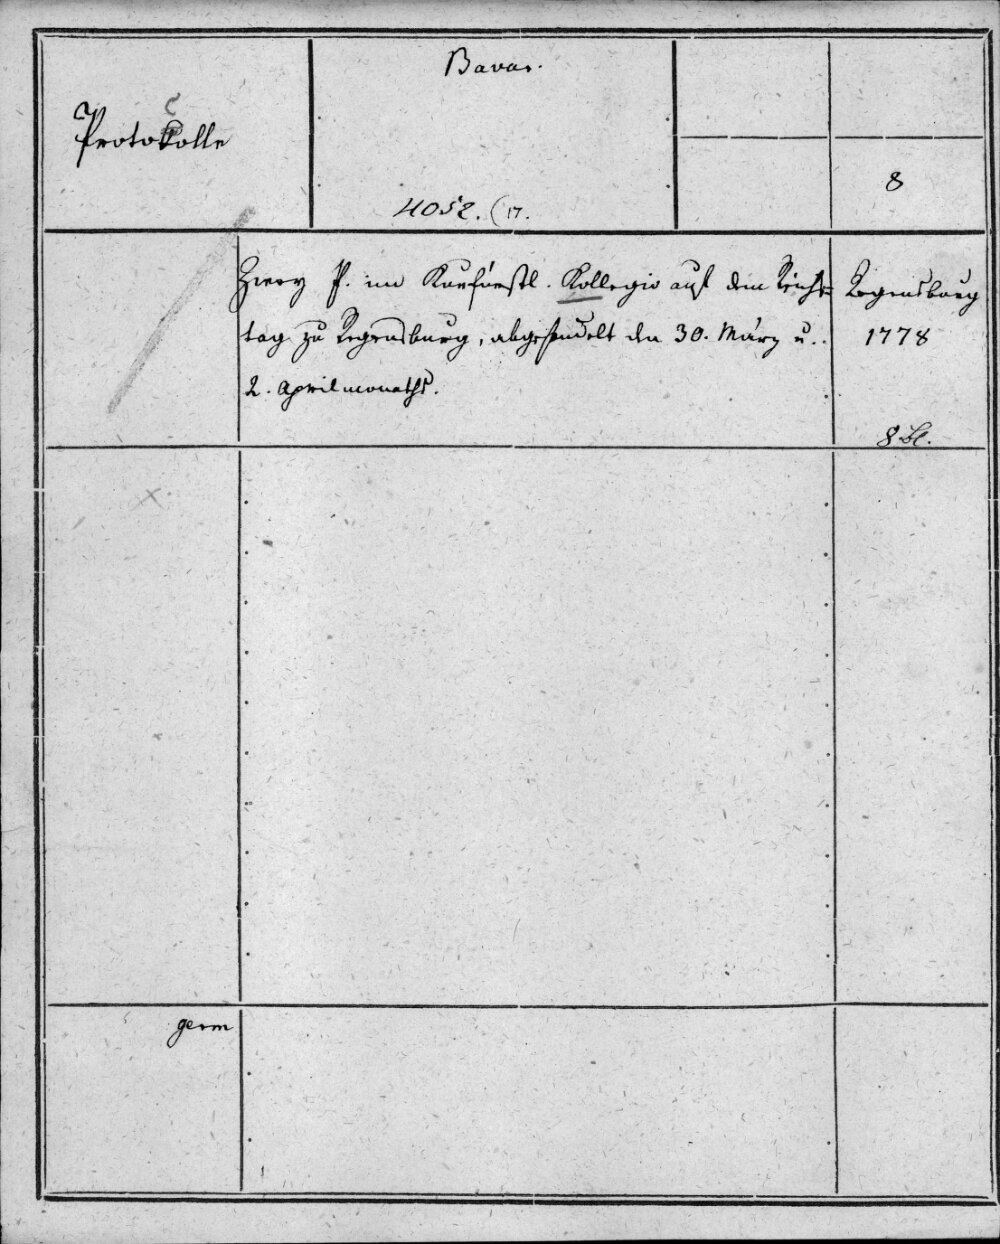 Bavar.
Protokolle
c
8
4052. (17.
Zwey P. im Kurfürstl. Kollegio auf dem Reichs=
tag zu Regensburg, abgehandelt den 30. März u.
2. Aprilmonaths.
Regensburg
1778
8 Bl.
germ